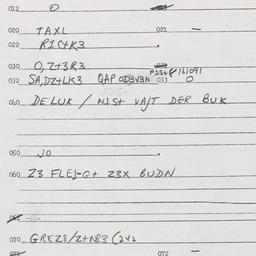 012 0
020 TAXL 021 —
022 R1C+K3 .
030 0,Z+3R3
032 SA,DZ+LK3 QAP 0D3V3N 033 0
040 DELUK / N1S+ VAJT DER BUK
050 J0 .
060 Z3 FLEJ-G+ Z3X BUDN
070 GREZ8/Z+N83 (242
072 —